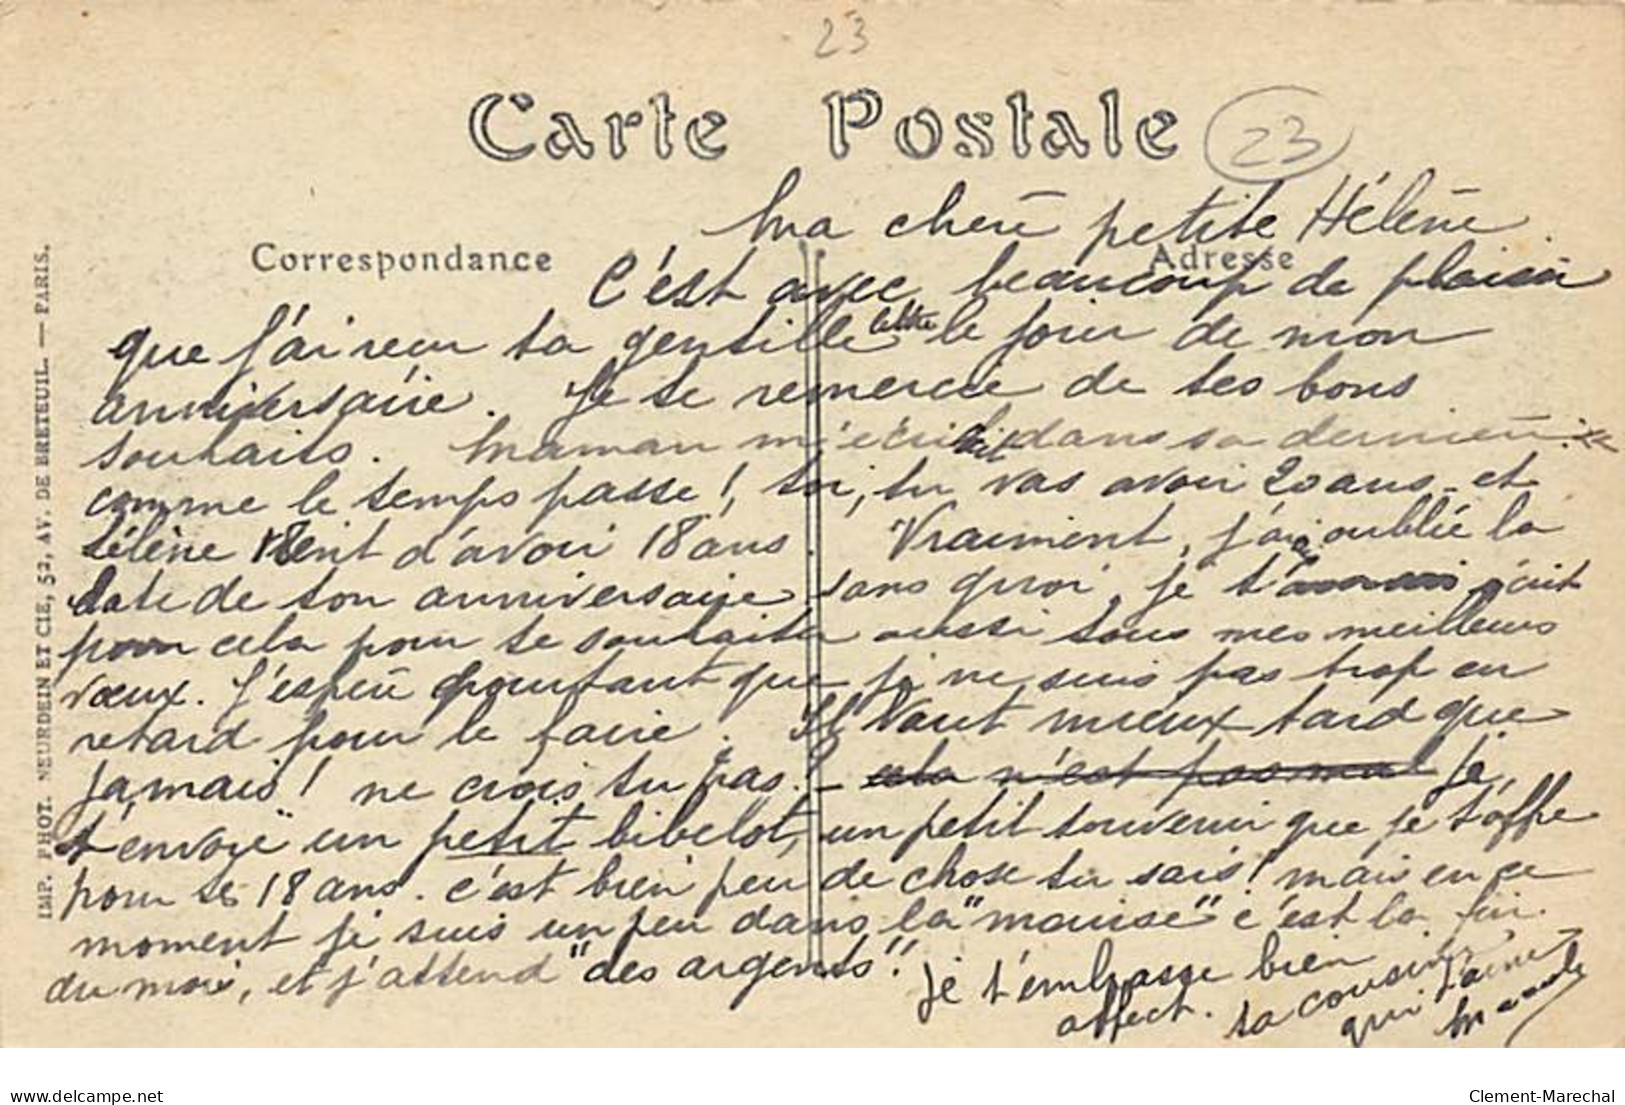 23
Carte Postale
23
Ma chère petite Hélène.
Correspondance
Adresse
C'est avec beaucoup de plaisir
que j'ai reçu ta gentille lettre le jour de mon
anniversaire. Je te remercie de tes bons
souhaits. Maman m'écrivait dans sa dernière :"
comme le temps passe !, toi, tu vas avoir 20 ans et
Hélène vient d'avoir 18 ans. Vraiment, j'ai oublié la
date de ton anniversaire sans quoi, je t'
pour cela pour te souhaiter aussi tous mes meilleurs
vœux. J'espère pourtant que je ne suis pas trop en
retard pour le faire. Il vaut mieux tard que
jamais ! ne crois tu pas ? - cela n'est pas mal Je
t'envoie un petit bibelot, un petit souvenir que je t'offre
pour tes 18 ans. c'est bien peu de chose tu sais ! mais en ce
moment je suis un peu dans la "mouise" c'est la fin
du mois, et j'attend "des argents".
Je t'embrasse bien
affect. ta cousine
qui t'aime
IMP. PHOT. NEURDEIN ET CIE, 52, AV. DE BRETEUIL. — PARIS.
www.delcampe.net
Clement-Marechal